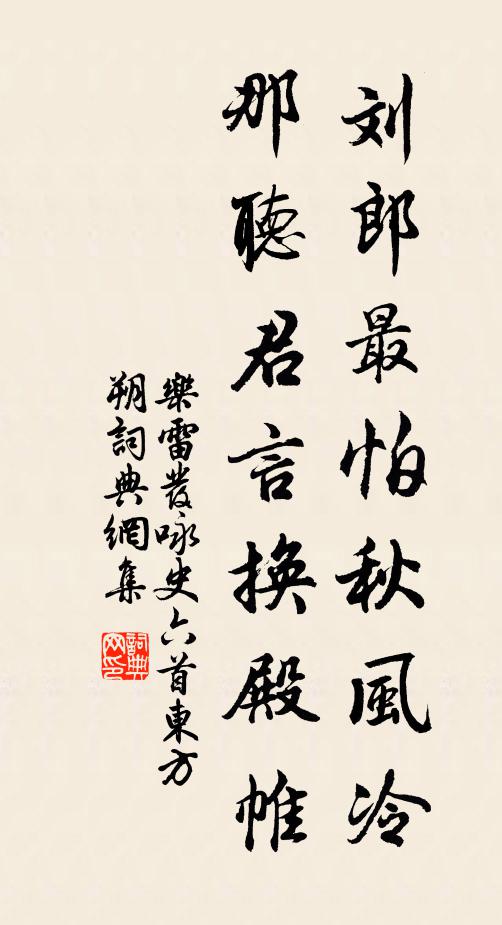 刘郎最怕秋風冷
那聴君言換殿帷
樂雷發咏史六首東方
朔詞典網集
詞典網印